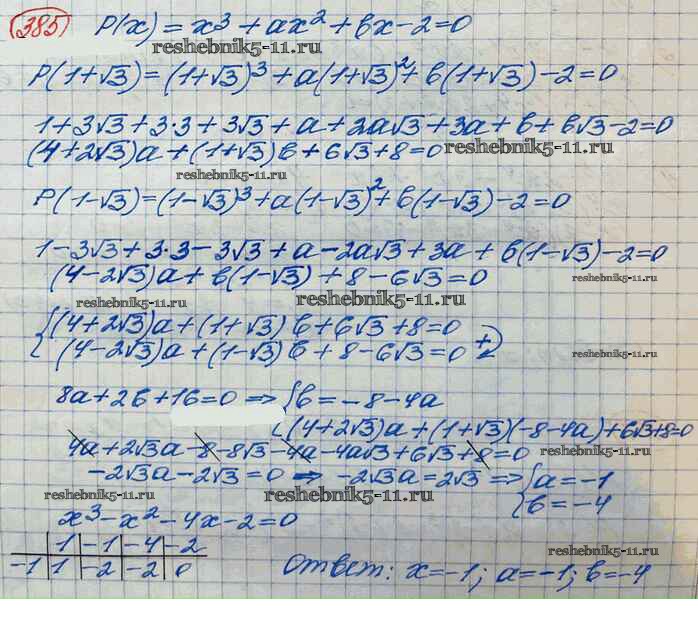 385 P(x) = x³ + ax² + bx - 2 = 0
reshebnik5-11.ru
P(1+√3) = (1+√3)³ + a(1+√3)² + b(1+√3) - 2 = 0
1 + 3√3 + 3·3 + 3√3 + a + 2a√3 + 3a + b + b√3 - 2 = 0
(4+2√3)a + (1+√3)b + 6√3 + 8 = 0 reshebnik5-11.ru
reshebnik5-11.ru
P(1-√3) = (1-√3)³ + a(1-√3)² + b(1-√3) - 2 = 0
1 - 3√3 + 3·3 - 3√3 + a - 2a√3 + 3a + b(1-√3) - 2 = 0
(4-2√3)a + b(1-√3) + 8 - 6√3 = 0 reshebnik5-11.ru
reshebnik5-11.ru
{(4+2√3)a + (1+√3)b + 6√3 + 8 = 0
(4-2√3)a + (1-√3)b + 8 - 6√3 = 0 + reshebnik5-11.ru
8a + 2b + 16 = 0 ⇒ {b = -8 - 4a
(4+2√3)a + (1+√3)(-8-4a) + 6√3 + 8 = 0
4a + 2√3a - 8 - 8√3 - 4a - 4a√3 + 6√3 + 8 = 0 reshebnik5-11.ru
-2√3a - 2√3 = 0 ⇒ -2√3a = 2√3 ⇒ {a = -1
reshebnik5-11.ru b = -4
x³ - x² - 4x - 2 = 0
1 -1 -4 -2 reshebnik5-11.ru
-1 1 -2 -2 0 Ответ: x = -1; a = -1; b = -4
reshebnik5-11.ru